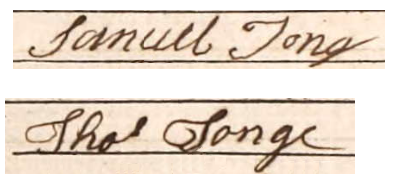 Samuell Tong
Thos Tonge